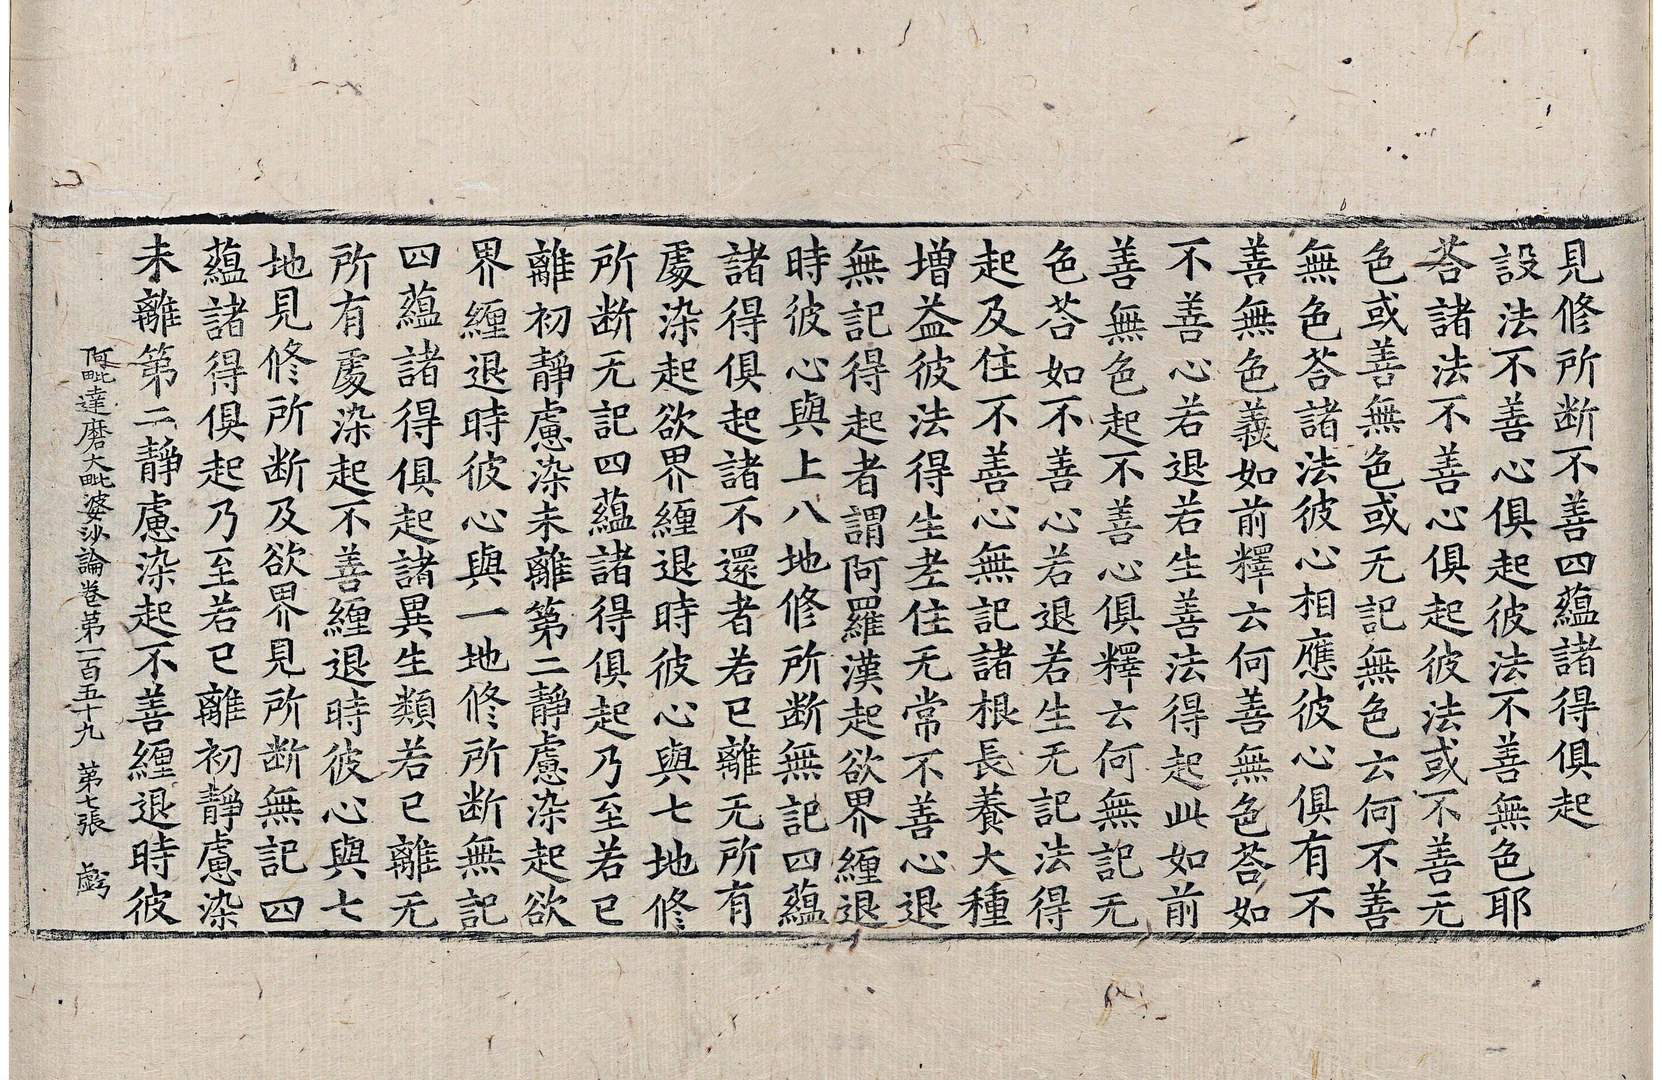 見修所断不善四蘊諸得俱起
設法不善心俱起彼法不善無色耶
荅諸法不善心俱起彼法或不善无
色或善無色或无記無色云何不善
無色荅諸法彼心相應彼心俱有不
善無色義如前釋云何善無色荅如
不善心若退若生善法得起此如前
善無色起不善心俱釋云何無記无
色荅如不善心若退若生无記法得
起及住不善心無記諸根長養大種
増益彼法得生老住无常不善心退
無記得起者謂阿羅漢起欲界纒退
時彼心與上八地修所断無記四蘊
諸得俱起諸不還者若已離无所有
處染起欲界纒退時彼心與七地修
所断无記四蘊諸得俱起乃至若已
離初靜慮染未離第二靜慮染起欲
界纒退時彼心與一地修所断無記
四蘊諸得俱起諸異生類若已離无
所有處染起不善纒退時彼心與七
地見修所断及欲界見所断無記四
蘊諸得俱起乃至若已離初靜慮染
未離第二靜慮染起不善纒退時彼
阿毗達磨大毗婆沙論卷第一百五十九 第七張 虧